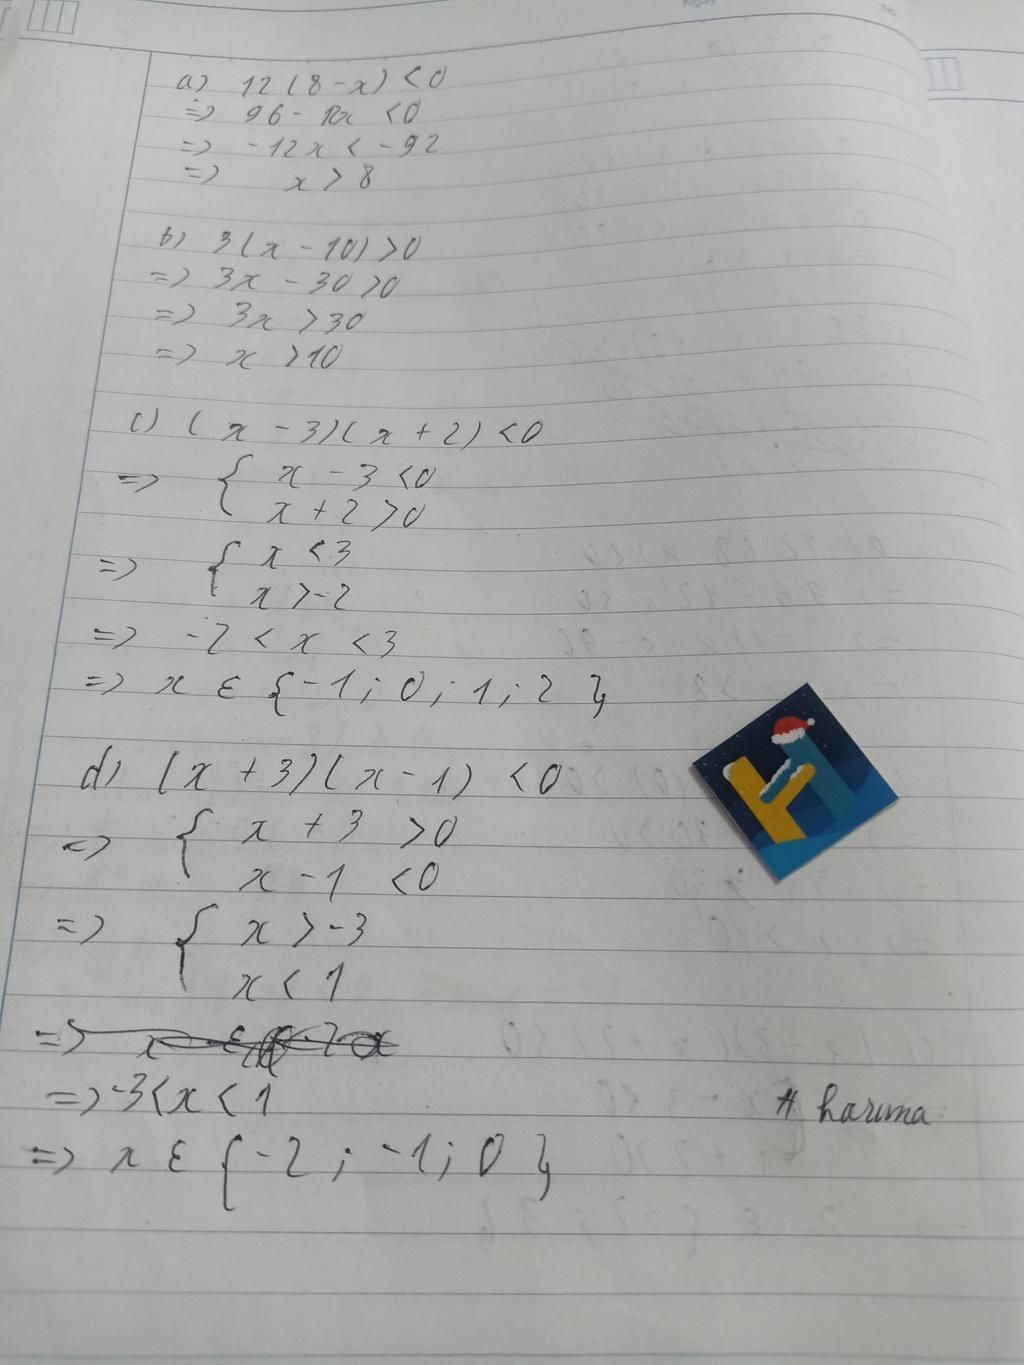 a) 12(8-x) <0
=> 96-12x <0
=> -12x < -92
=> x > 8
b) 3(x-10)>0
=> 3x-30>0
=> 3x >30
=> x >10
c) (x-3)(x+2)<0
=> { x-3 <0
x+2>0
=> { x <3
x>-2
=> -2 < x <3
=> x ε {-1; 0; 1; 2}
d) (x+3)(x-1) <0
=> { x+3 >0
x-1 <0
=> { x >-3
x < 1
=>
=> -3<x<1
# haruma
=> x ε {-2; -1; 0}